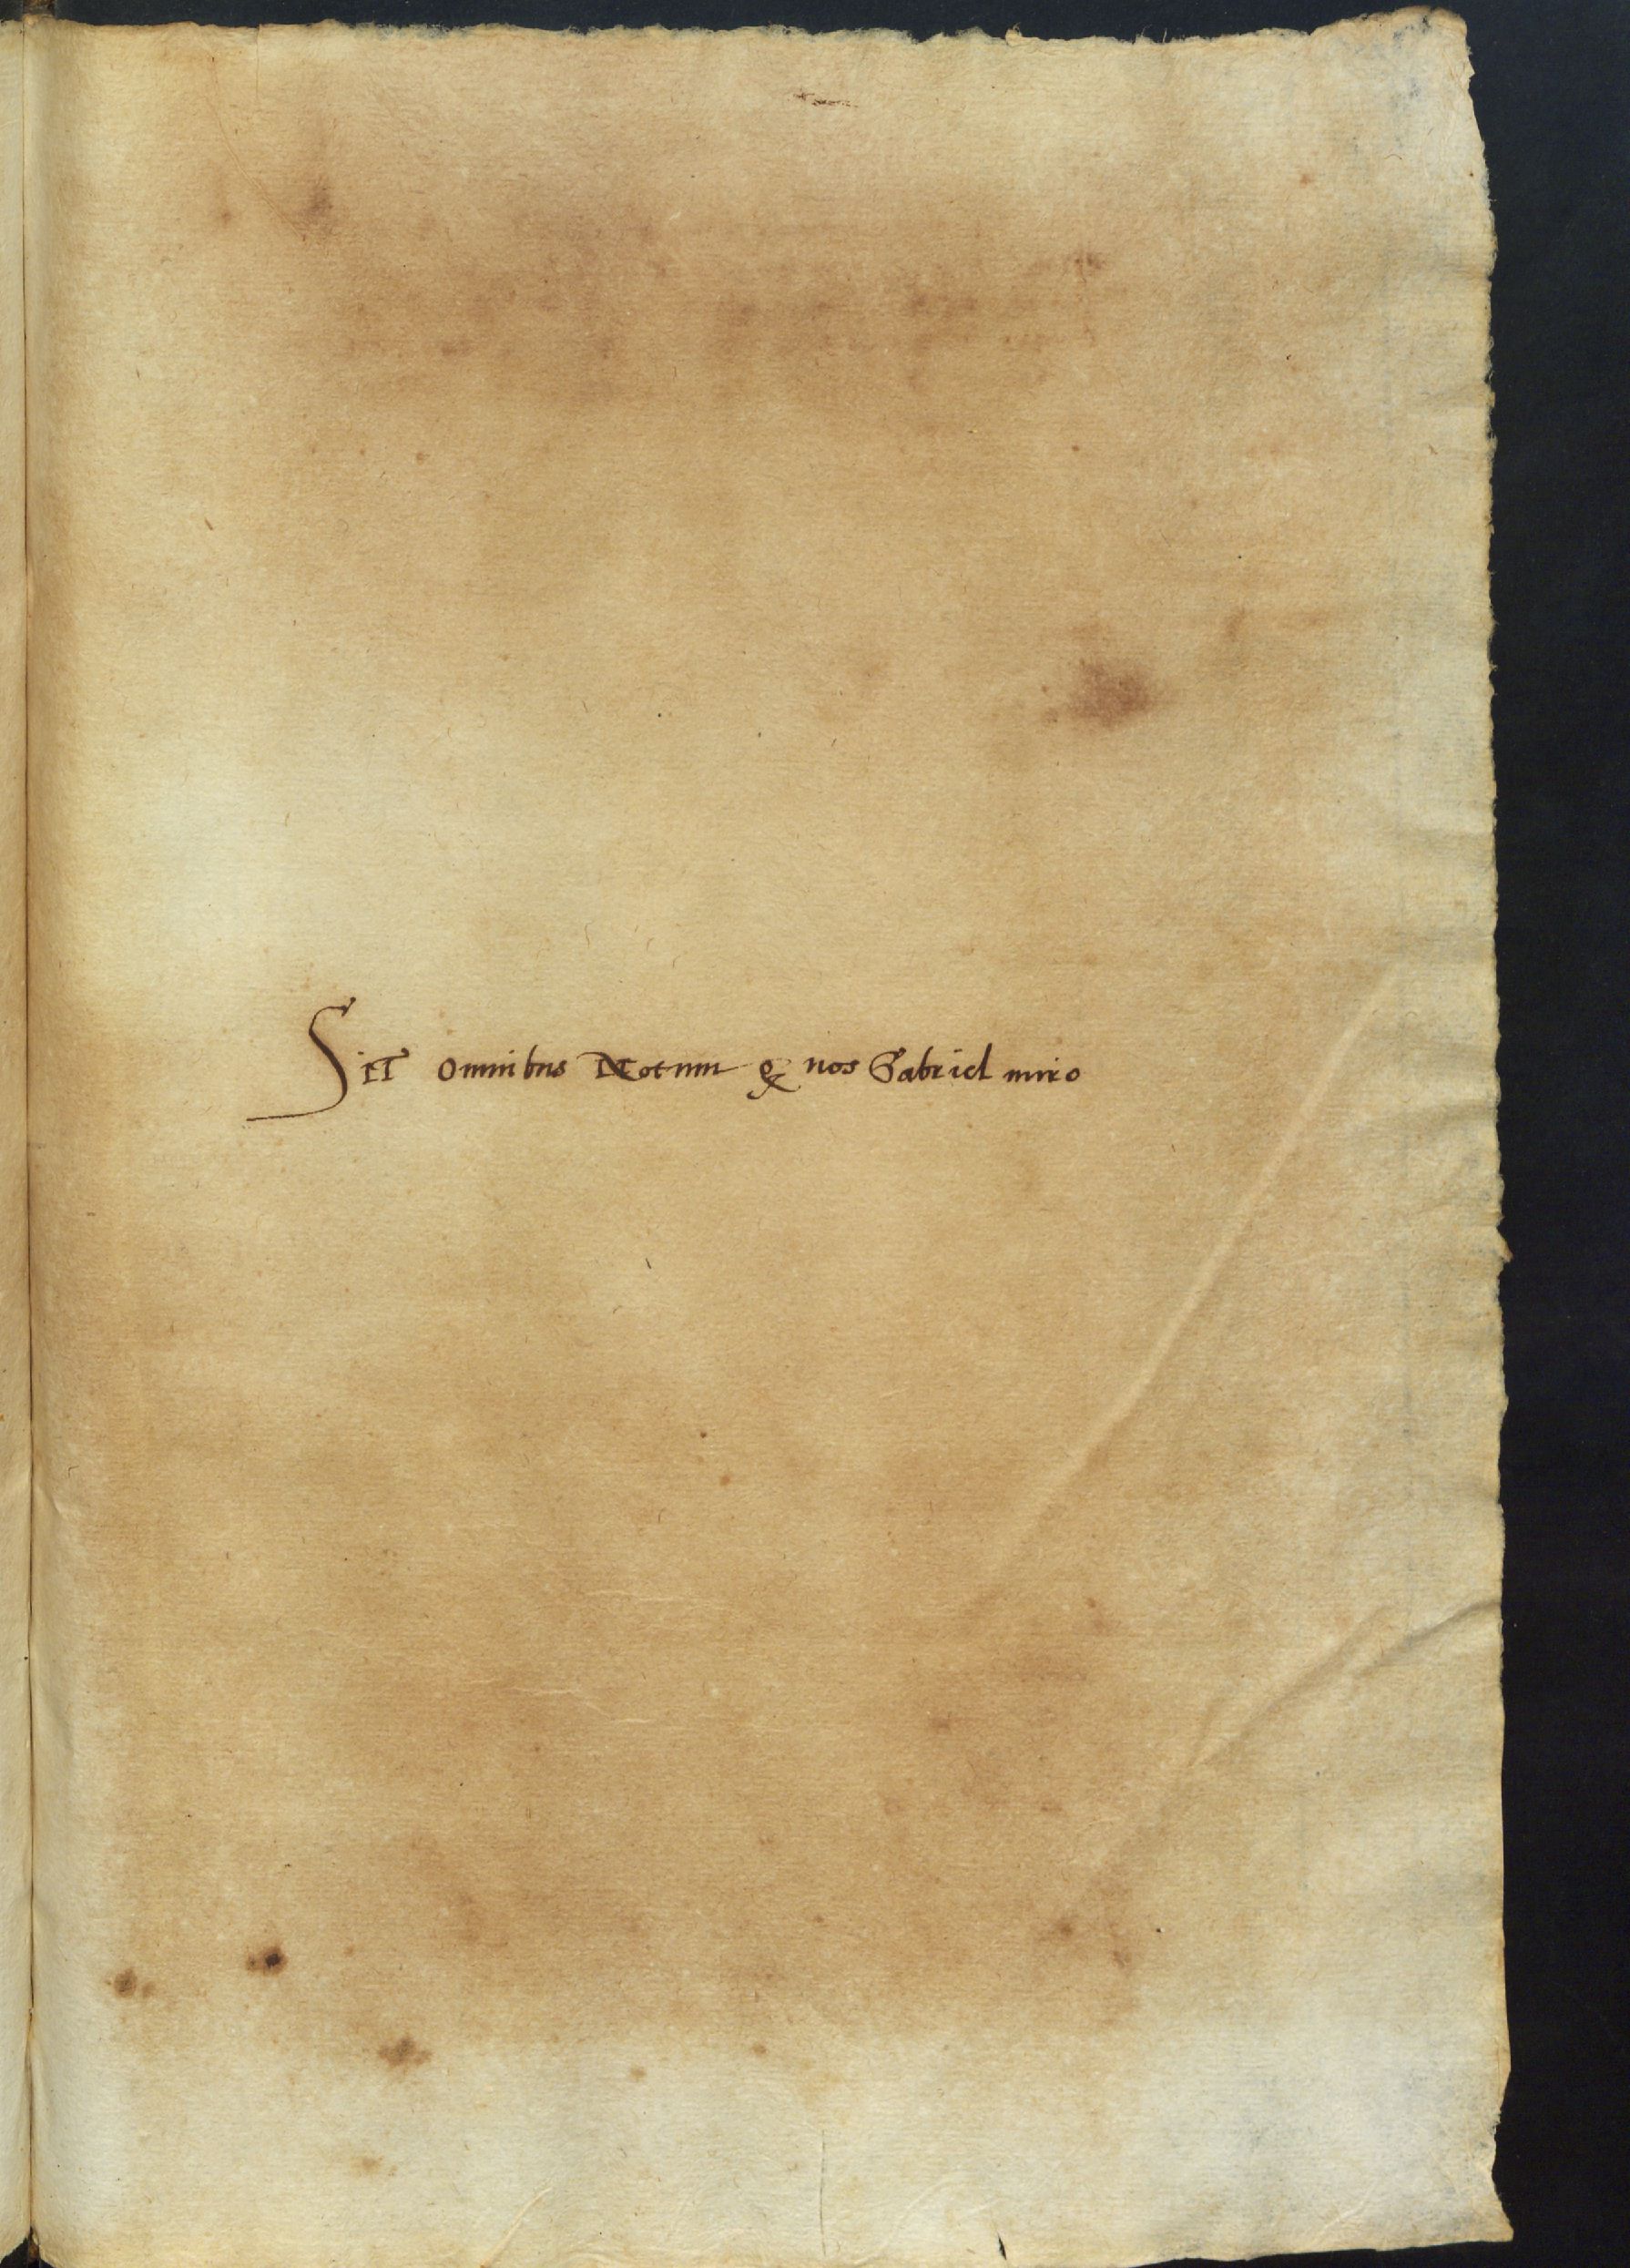 Sit omnibus Notum ꝙ nos Gabriel miro